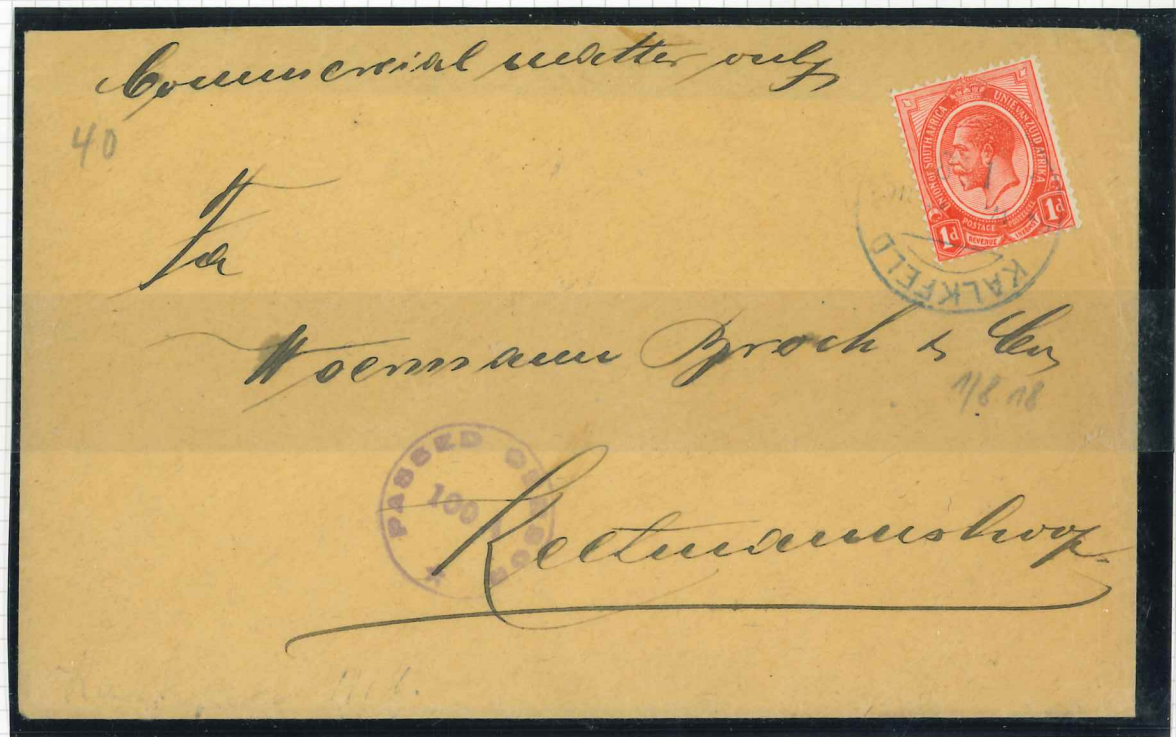 Commercial matter only
40
UNION OF SOUTH AFRICA UNIE VAN ZUID AFRIKA
POSTAGE
1d REVENUE 1d
KALKFELD
Fa
Woermann Brock & Co
1/8 18
PASSED CENSOR
100
Keetmannshoop